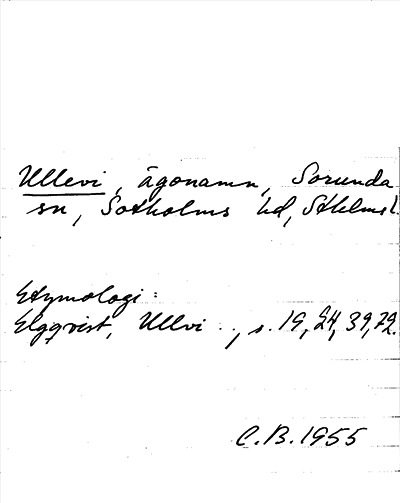 Ullevi, ägonamn, Sorunda
sn, Sotholms hd, Sthlms l.
Etymologi:
Elgqvist, Ullvi .., s. 19, 24, 39, 72.
C.B. 1955